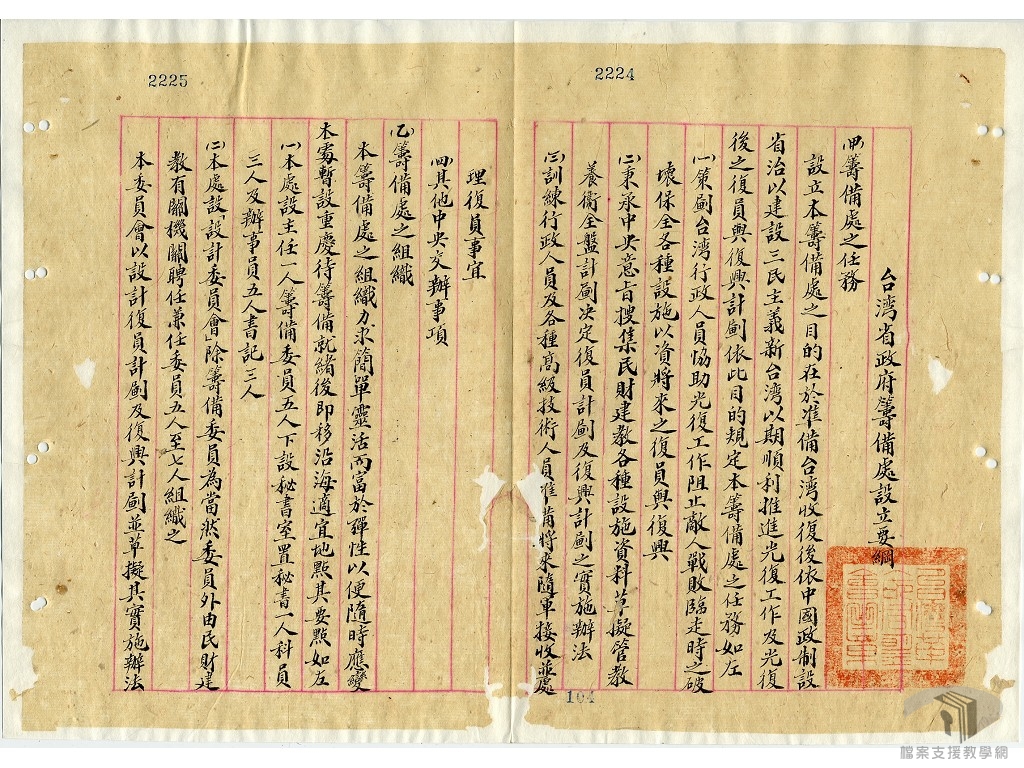 2224
台湾省政府籌備處設立要綱
㈙籌備處之任務
設立本籌備處之目的在於準備台湾收復後依中國政制設
省治以建設三民主義新台湾以期順利推進光復工作及光復
後之復員與復興計劃依此目的規定本籌備處之任務如左
㈠策劃台湾行政人員協助光復工作阻止敵人戰敗臨走時之破
壞保全各種設施以資將來之復員與復興
㈡秉承中央意旨搜集民財建教各種設施資料草擬管教
養衛全盤計劃決定復員計劃及復興計劃之實施辦法
㈢訓練行政人員及各種高級技術人員準備將來隨軍接收並處
104
2225
理復員事宜
㈣其他中央交辦事項
㈚籌備處之組織
本籌備處之組織力求簡單靈活而富於彈性以便隨時應變
本處暫設重慶待籌備就緒後即移沿海適宜地點其要點如左
㈠本處設主任一人籌備委員五人下設秘書室置秘書一人科員
三人及辦事員五人書記三人
㈡本處設「設計委員會」除籌備委員為當然委員外由民財建
教有關機關聘任兼任委員五人至七人組織之
本委員會以設計復員計劃及復興計劃並草擬其實施辦法
檔案支援教學網